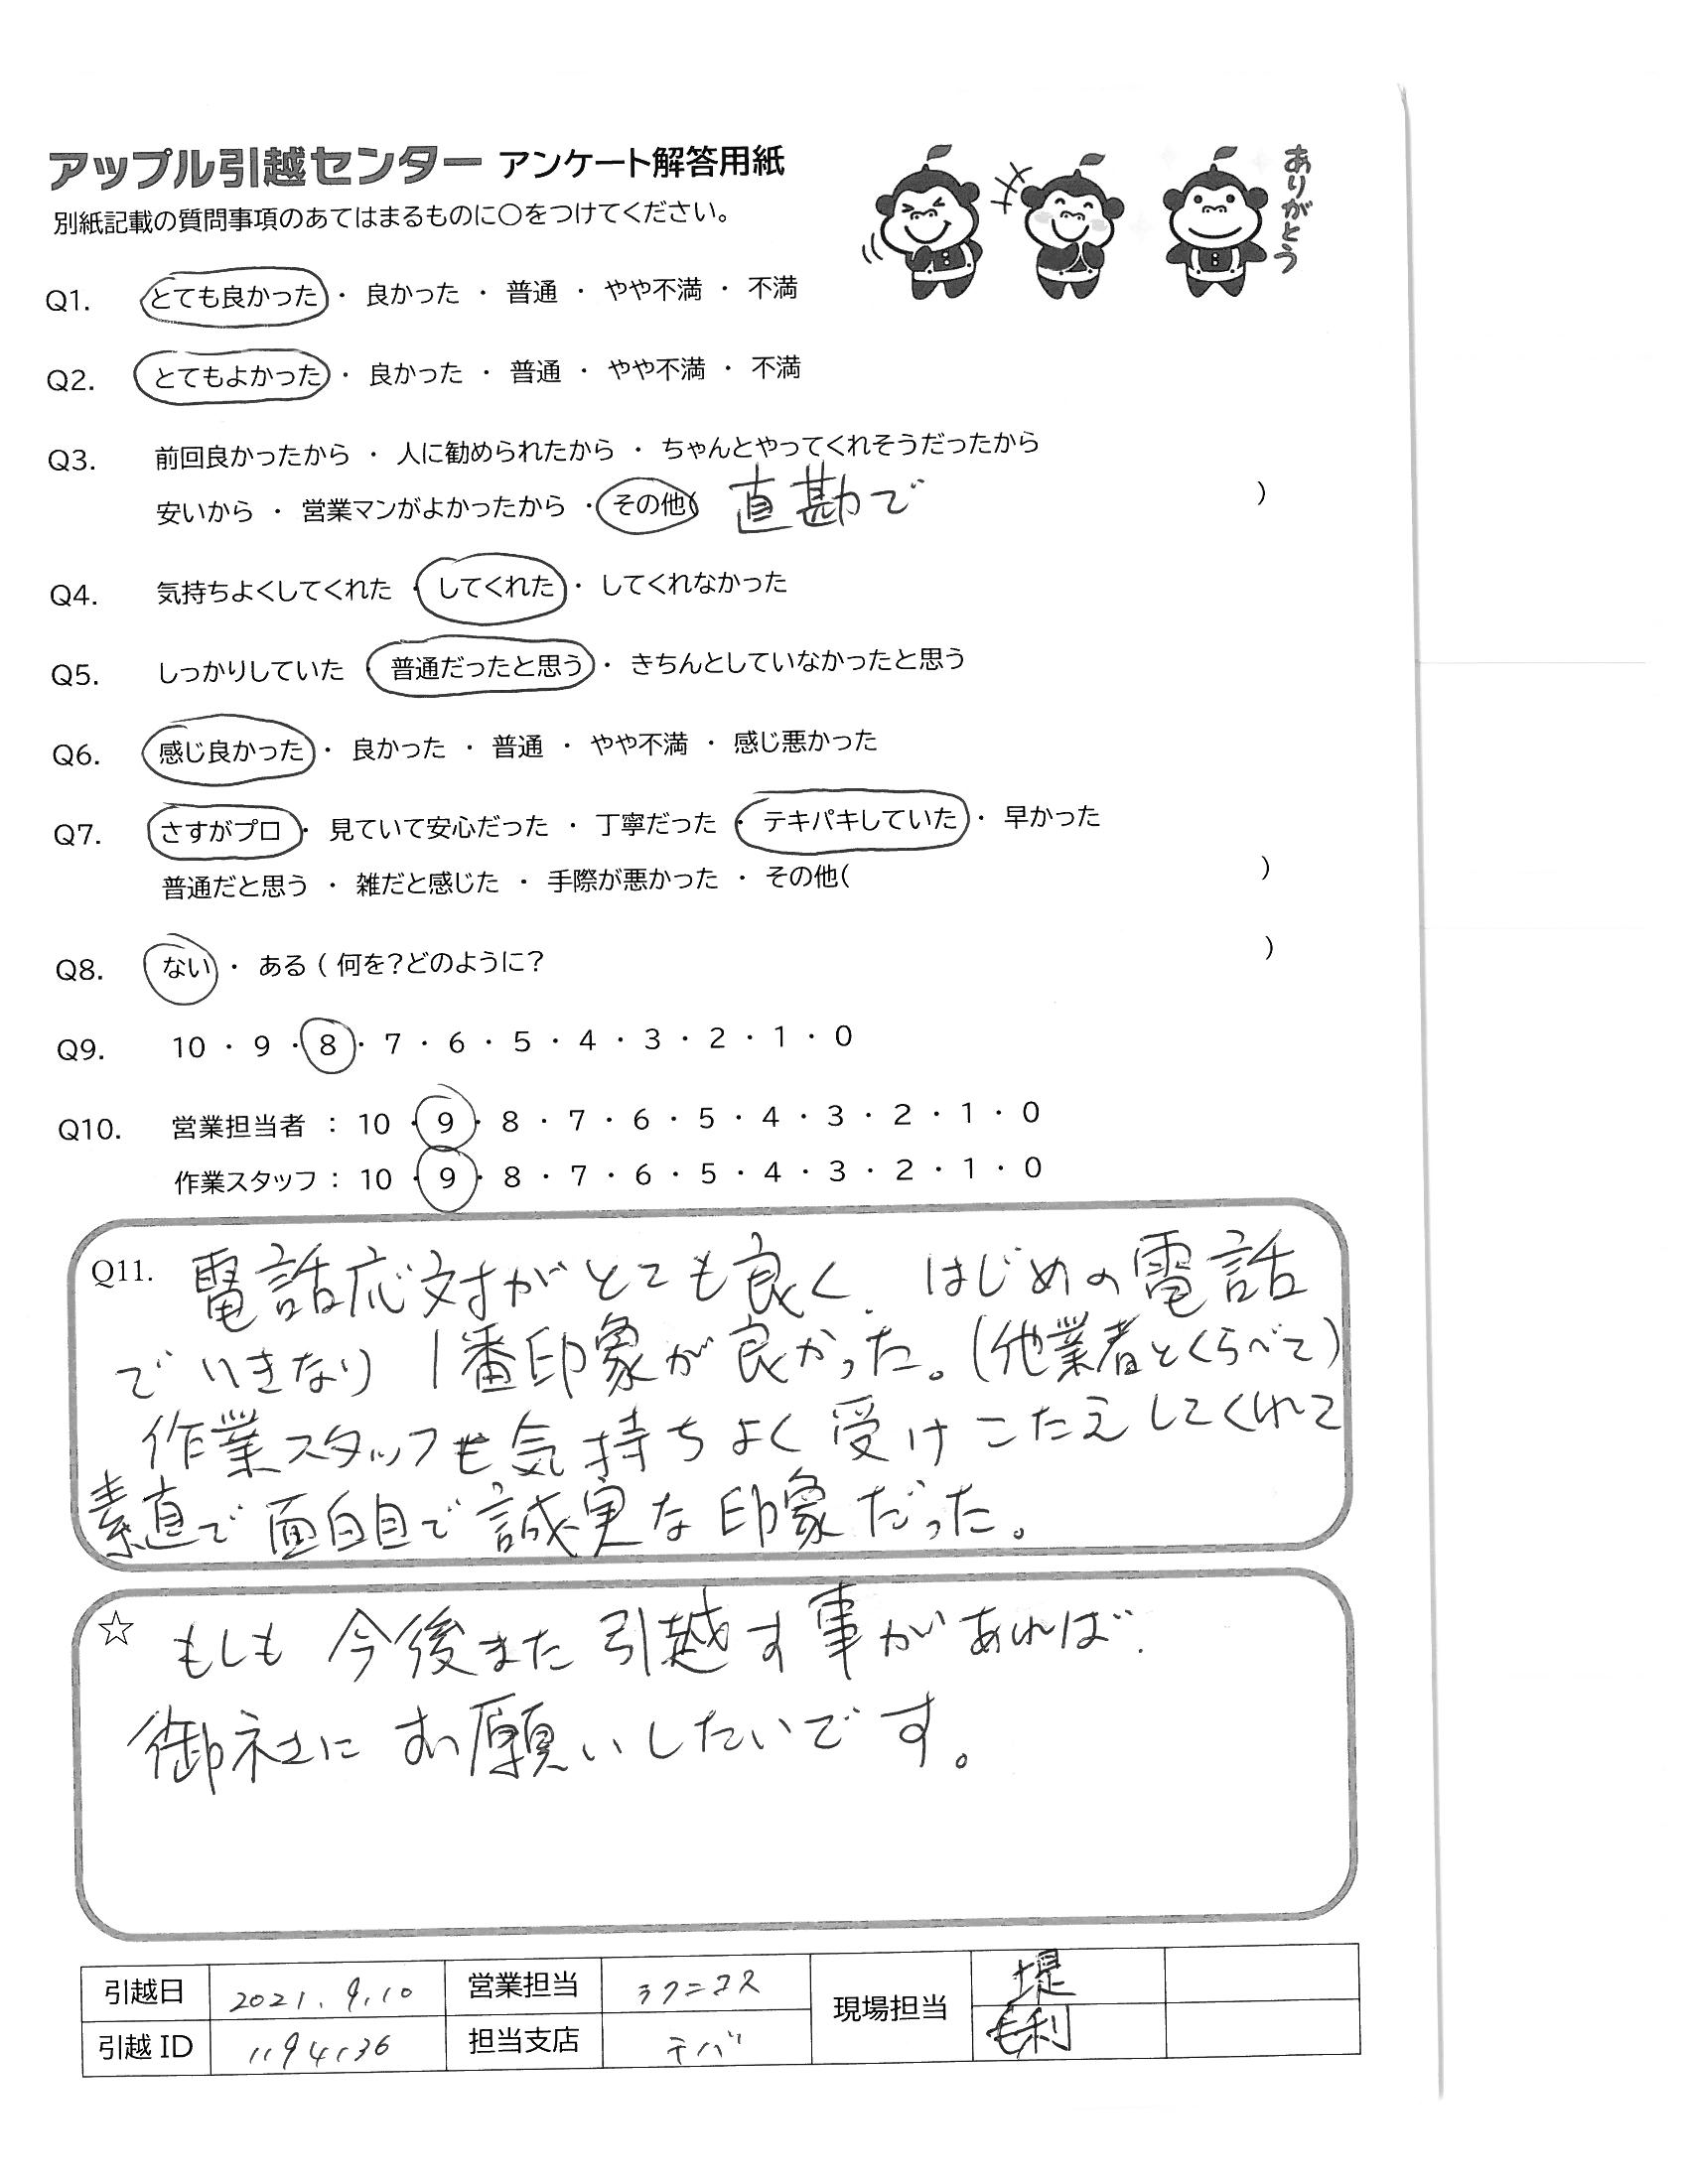 アップル引越センター アンケート解答用紙
別紙記載の質問事項のあてはまるものに〇をつけてください。
ありがとう
Q1. とても良かった ・ 良かった ・ 普通 ・ やや不満 ・ 不満
Q2. とてもよかった ・ 良かった ・ 普通 ・ やや不満 ・ 不満
Q3. 前回良かったから ・ 人に勧められたから ・ ちゃんとやってくれそうだったから
安いから ・ 営業マンがよかったから ・ その他( 直勘で )
Q4. 気持ちよくしてくれた ・ してくれた ・ してくれなかった
Q5. しっかりしていた ・ 普通だったと思う ・ きちんとしていなかったと思う
Q6. 感じ良かった ・ 良かった ・ 普通 ・ やや不満 ・ 感じ悪かった
Q7. さすがプロ ・ 見ていて安心だった ・ 丁寧だった ・ テキパキしていた ・ 早かった
普通だと思う ・ 雑だと感じた ・ 手際が悪かった ・ その他( )
Q8. ない ・ ある ( 何を?どのように? )
Q9. 10 ・ 9 ・ 8 ・ 7 ・ 6 ・ 5 ・ 4 ・ 3 ・ 2 ・ 1 ・ 0
Q10. 営業担当者 : 10 ・ 9 ・ 8 ・ 7 ・ 6 ・ 5 ・ 4 ・ 3 ・ 2 ・ 1 ・ 0
作業スタッフ : 10 ・ 9 ・ 8 ・ 7 ・ 6 ・ 5 ・ 4 ・ 3 ・ 2 ・ 1 ・ 0
Q11. 電話応対がとても良く、はじめの電話
でいきなり1番印象が良かった。(他業者とくらべて)
作業スタッフも気持ちよく受けこたえしてくれて
素直で面白目で誠実な印象だった。
☆ もしも今後また引越す事があれば、
御社にお願いしたいです。
引越日 2021.9.10 営業担当 現場担当 堤
引越ID 1194136 担当支店 チバ 毛利